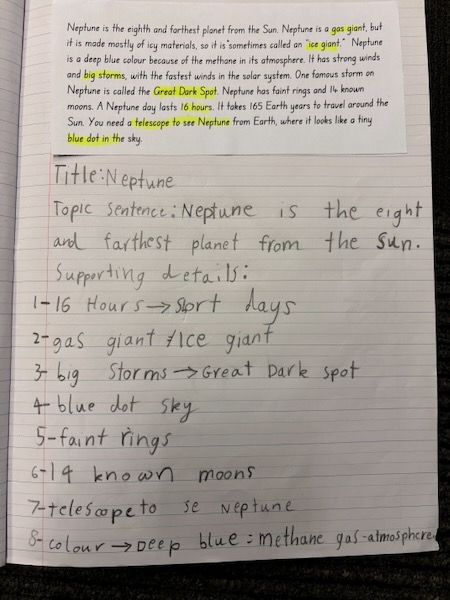 Neptune is the eighth and farthest planet from the Sun. Neptune is a gas giant, but
it is made mostly of icy materials, so it is sometimes called an "ice giant." Neptune
is a deep blue colour because of the methane in its atmosphere. It has strong winds
and big storms, with the fastest winds in the solar system. One famous storm on
Neptune is called the Great Dark Spot. Neptune has faint rings and 14 known
moons. A Neptune day lasts 16 hours. It takes 165 Earth years to travel around the
Sun. You need a telescope to see Neptune from Earth, where it looks like a tiny
blue dot in the sky.
Title: Neptune
Topic sentence: Neptune is the eight
and farthest planet from the Sun.
Supporting details:
1-16 Hours → Sort days
2-gas giant / Ice giant
3- big Storms → Great Dark Spot
4- blue dot sky
5-faint rings
6-14 known moons
7-telescope to se Neptune
8- colour → Deep blue : methane gas-atmosphere